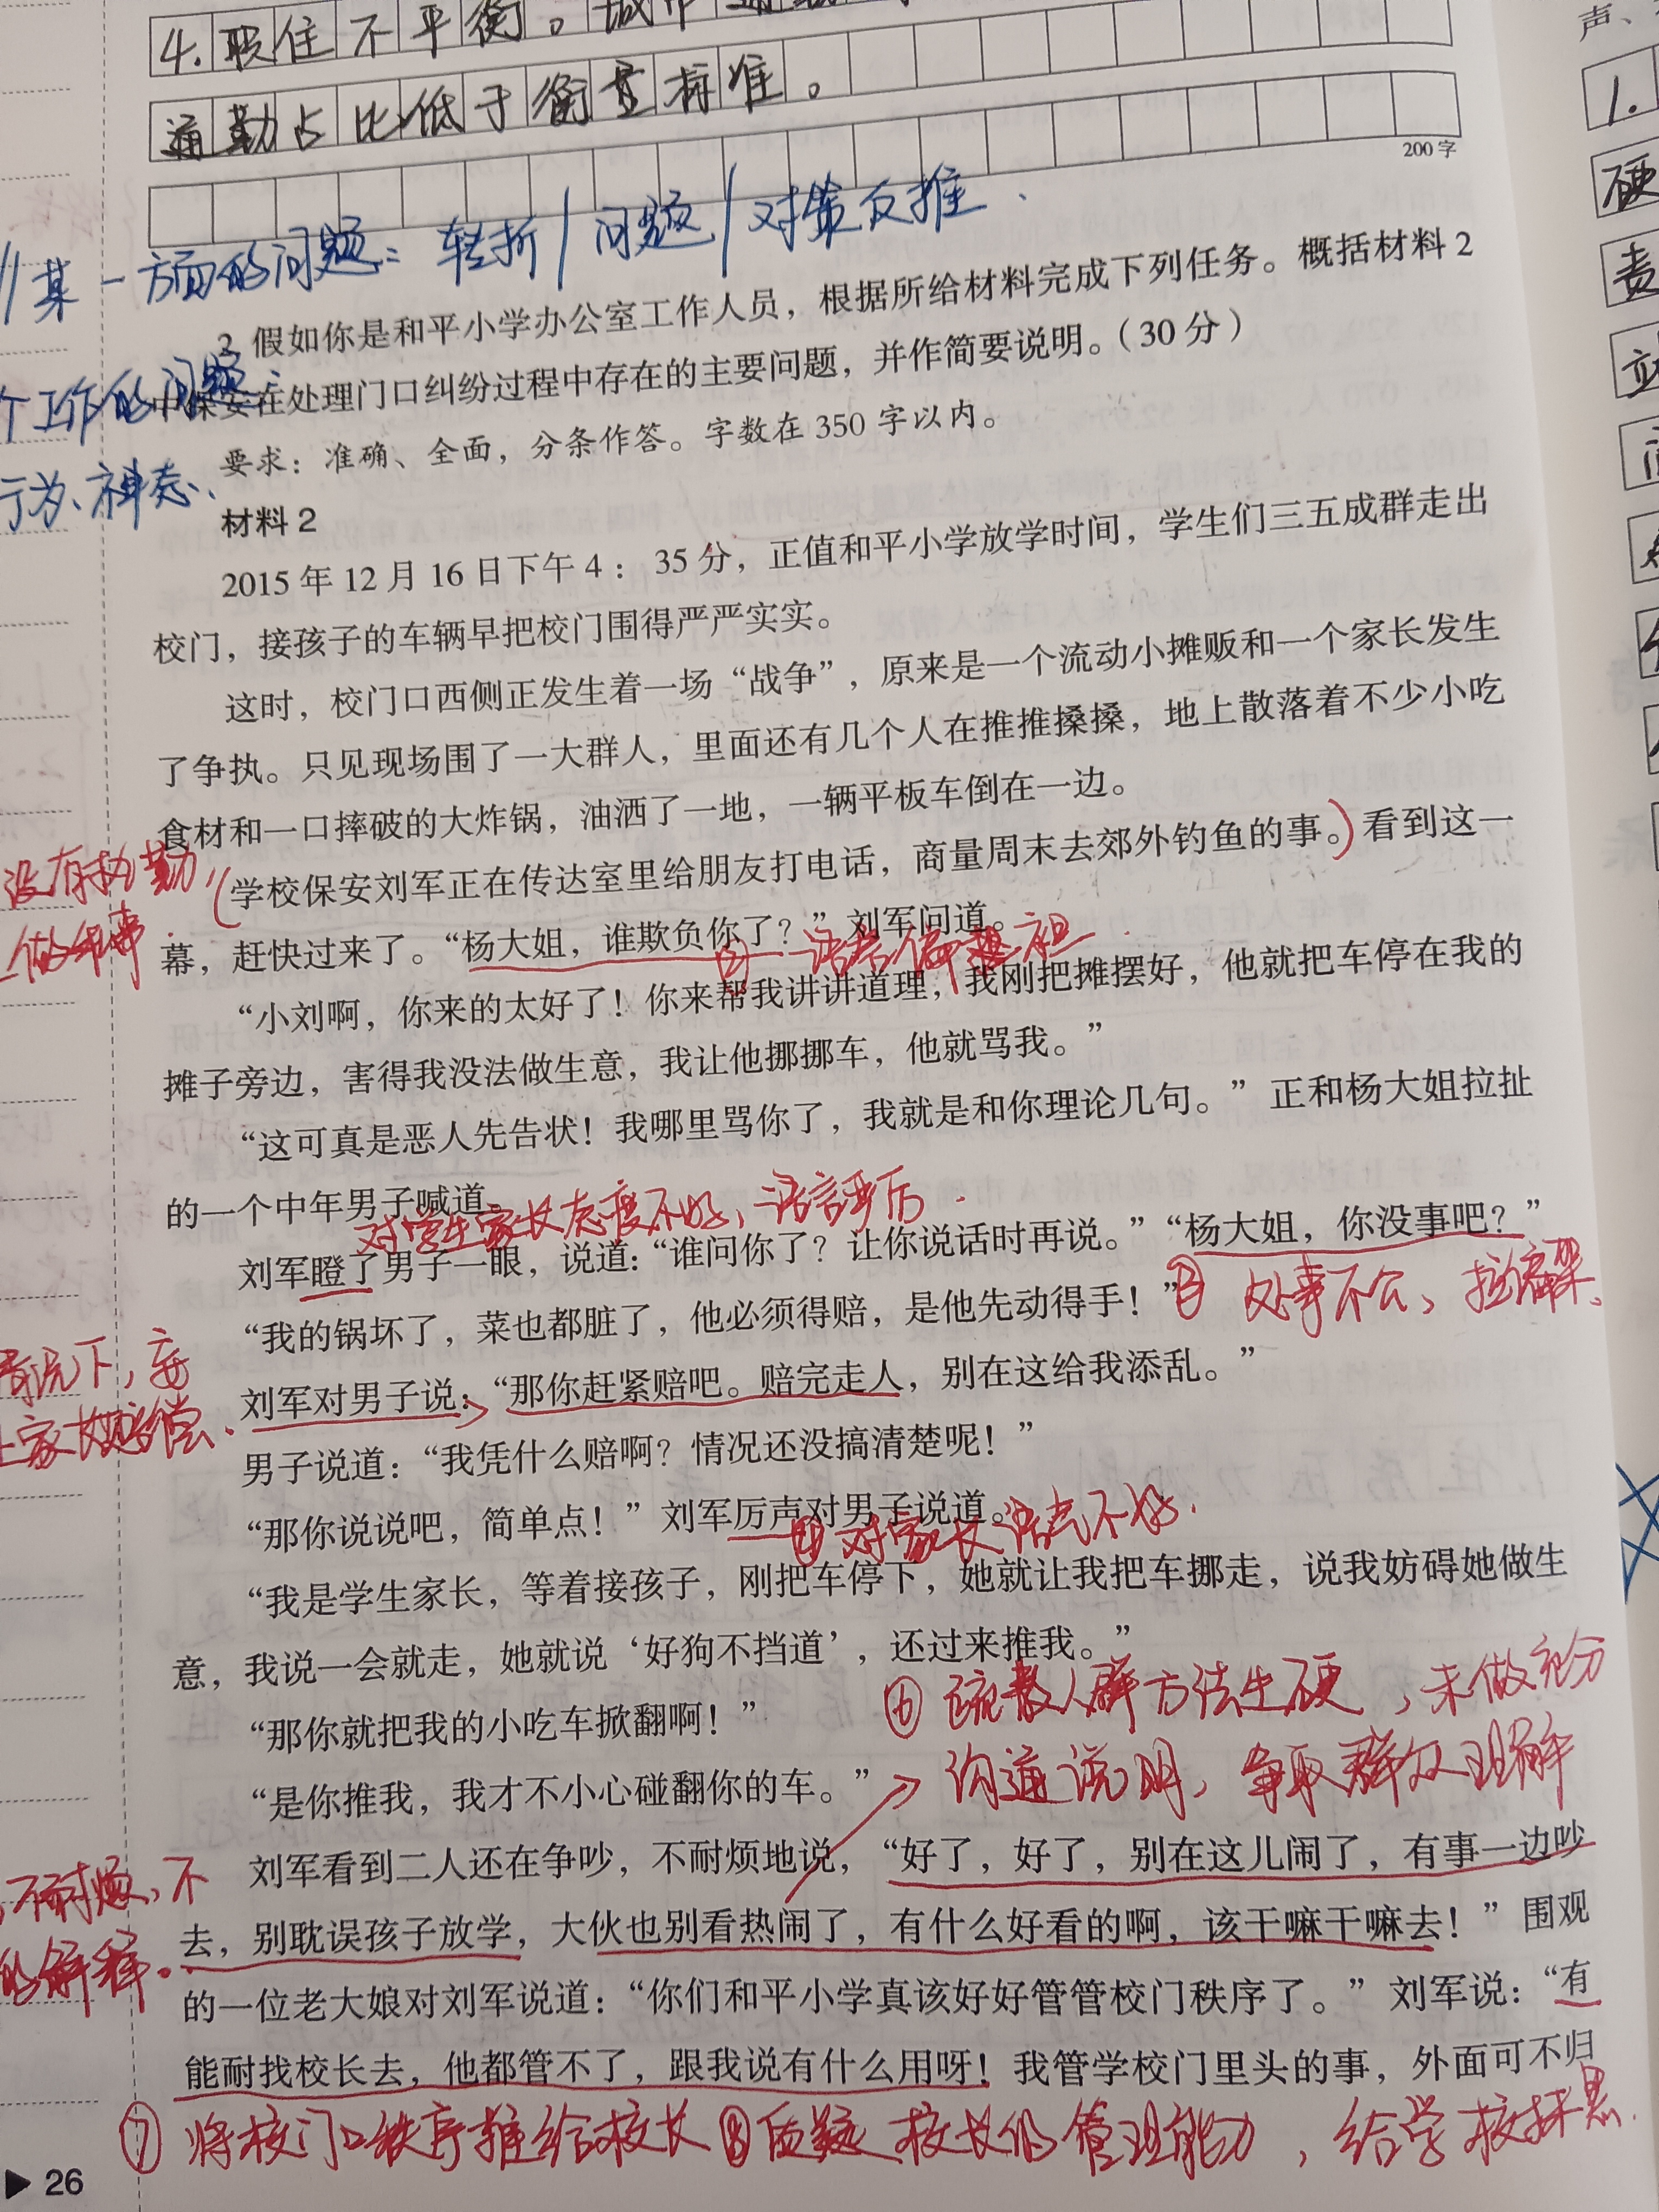 4.职住不平衡。城市通
声、
通勤占比低于衡量标准。
1.
200 字
硬
责
某一方面的问题：转折/问题/对策反推.
2. 假如你是和平小学办公室工作人员，根据所给材料完成下列任务。概括材料 2
个工作的问题：
中保安在处理门口纠纷过程中存在的主要问题，并作简要说明。（30 分）
要求：准确、全面，分条作答。字数在 350 字以内。
行为、神态、
材料 2
2015 年 12 月 16 日下午 4： 35 分，正值和平小学放学时间，学生们三五成群走出
校门，接孩子的车辆早把校门围得严严实实。
这时，校门口西侧正发生着一场“战争”，原来是一个流动小摊贩和一个家长发生
了争执。只见现场围了一大群人，里面还有几个人在推推搡搡，地上散落着不少小吃
食材和一口摔破的大炸锅，油洒了一地，一辆平板车倒在一边。
没有执勤，
学校保安刘军正在传达室里给朋友打电话，商量周末去郊外钓鱼的事。看到这一
幕，赶快过来了。“杨大姐，谁欺负你了？”刘军问道。
② 语言偏袒.
“小刘啊，你来的太好了！你来帮我讲讲道理，我刚把摊摆好，他就把车停在我的
摊子旁边，害得我没法做生意，我让他挪挪车，他就骂我。”
“这可真是恶人先告状！我哪里骂你了，我就是和你理论几句。”正和杨大姐拉扯
的一个中年男子喊道。
对学生家长态度不好、语言严厉.
刘军瞪了男子一眼，说道：“谁问你了？让你说话时再说。”“杨大姐，你没事吧？”
③ 处事不公、拉偏架、
“我的锅坏了，菜也都脏了，他必须得赔，是他先动得手！”
情况下，妄
刘军对男子说：“那你赶紧赔吧。赔完走人，别在这给我添乱。”
让家长赔偿、
男子说道：“我凭什么赔啊？情况还没搞清楚呢！”
“那你说说吧，简单点！”刘军厉声对男子说道。
④ 对家长语气不好.
“我是学生家长，等着接孩子，刚把车停下，她就让我把车挪走，说我妨碍她做生
意，我说一会就走，她就说‘好狗不挡道’，还过来推我。”
⑥ 疏散人群方法生硬，未做充分
“那你就把我的小吃车掀翻啊！”
沟通说明、争取群众理解
“是你推我，我才不小心碰翻你的车。”
不耐烦，不
刘军看到二人还在争吵，不耐烦地说，“好了，好了，别在这儿闹了，有事一边吵
去，别耽误孩子放学，大伙也别看热闹了，有什么好看的啊，该干嘛干嘛去！”围观
的解释。
的一位老大娘对刘军说道：“你们和平小学真该好好管管校门秩序了。”刘军说：“有
能耐找校长去，他都管不了，跟我说有什么用呀！我管学校门里头的事，外面可不归
⑦ 将校门口秩序推给校长 ⑧ 质疑校长的管理能力，给学校抹黑.
26